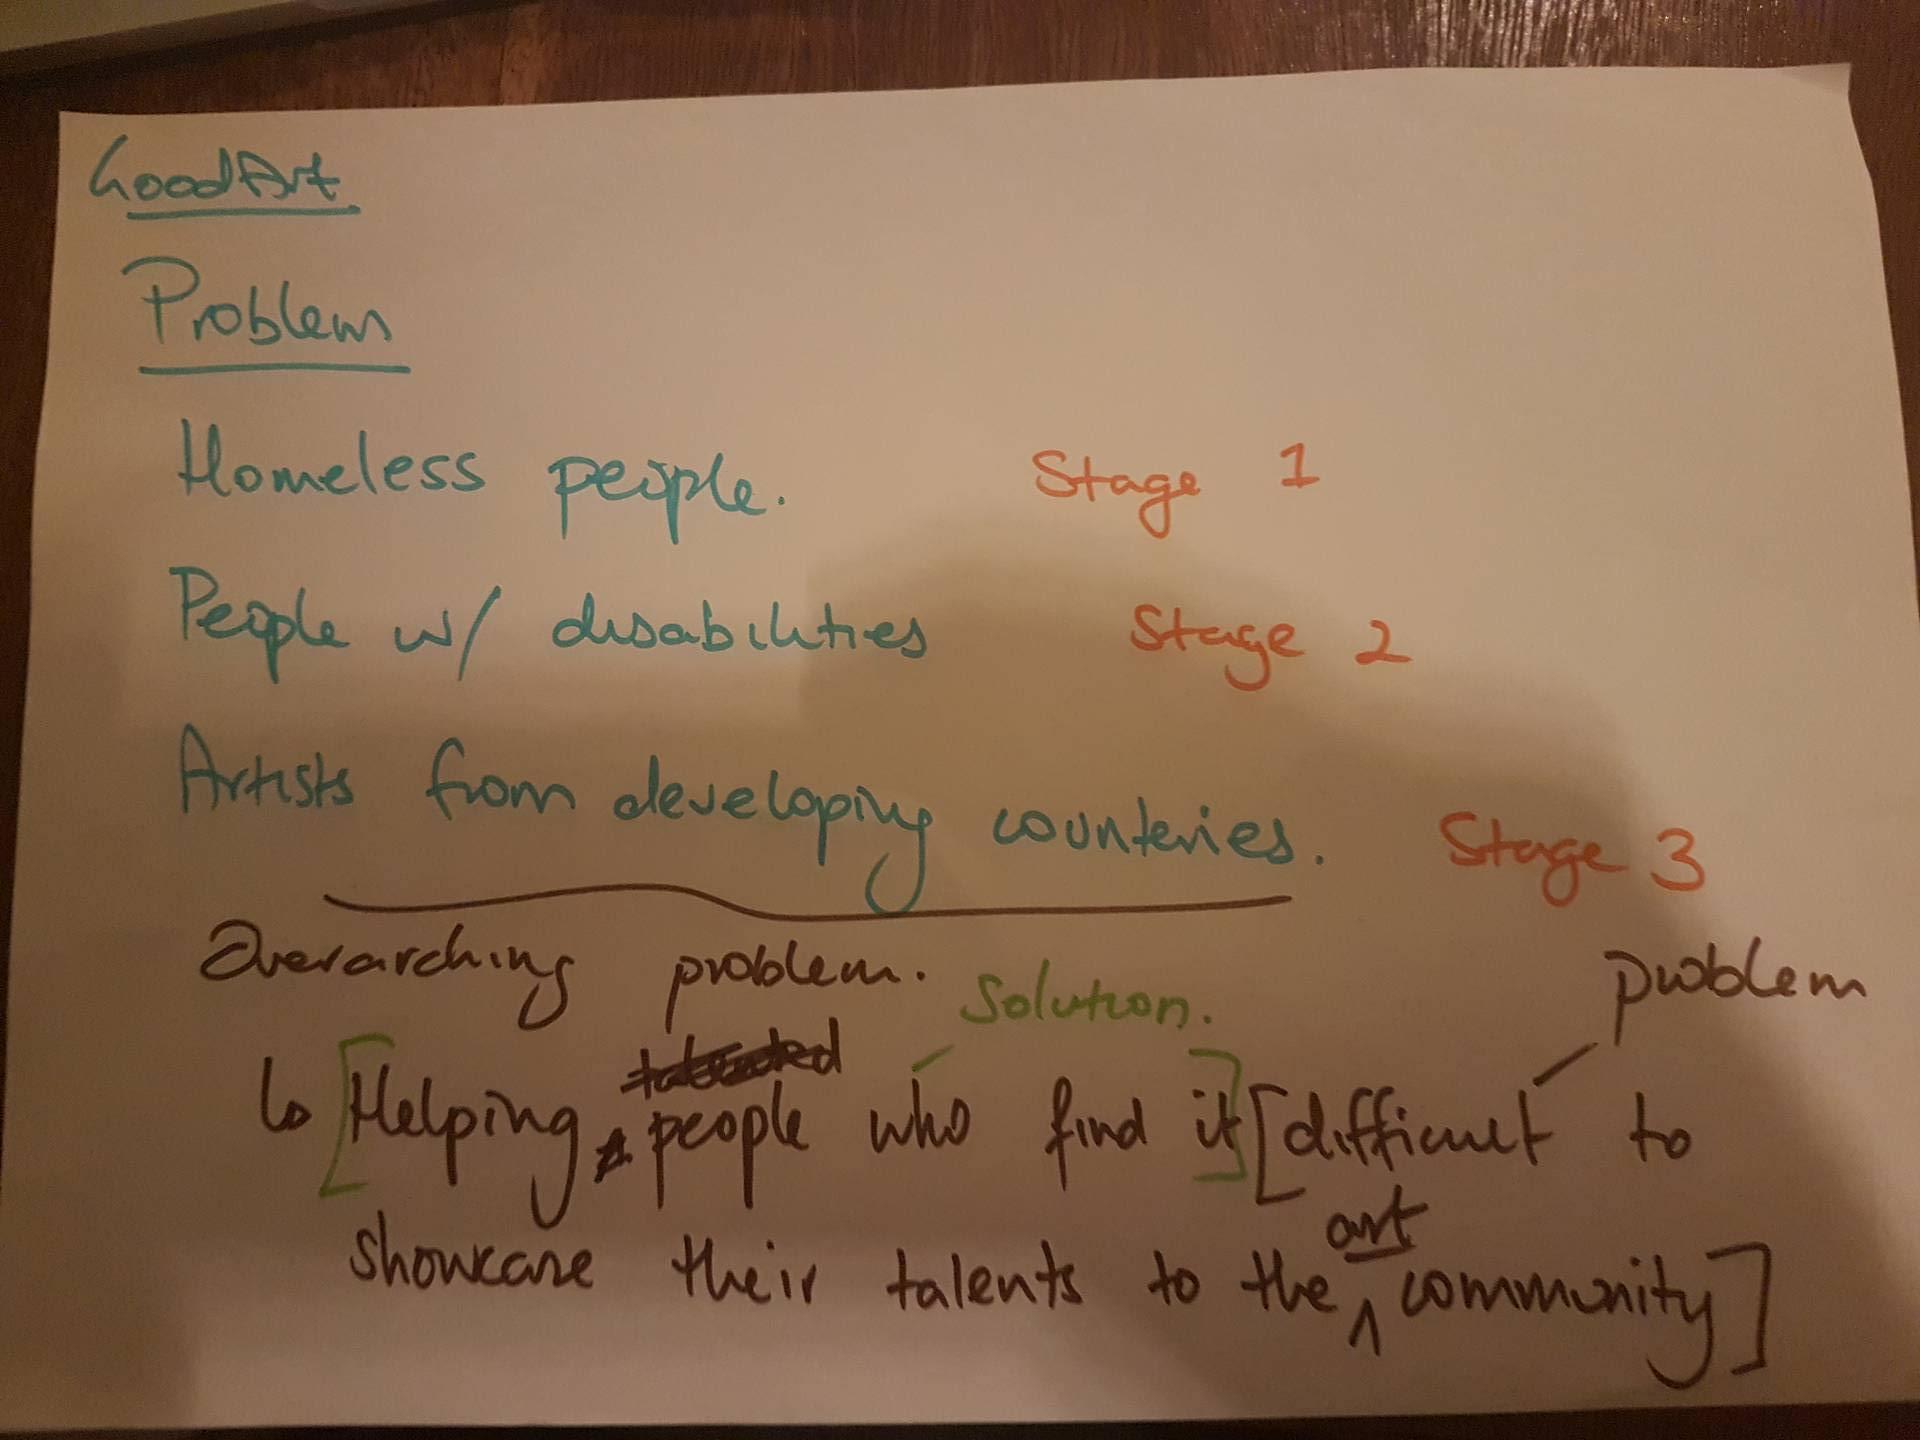 GoodArt
Problem
Homeless people. Stage 1
People w/ disabilities Stage 2
Artists from developing counteries. Stage 3
Overarching problem.
Solution. problem
↳ [Helping people who find it] [difficult to
showcase their talents to the art community]